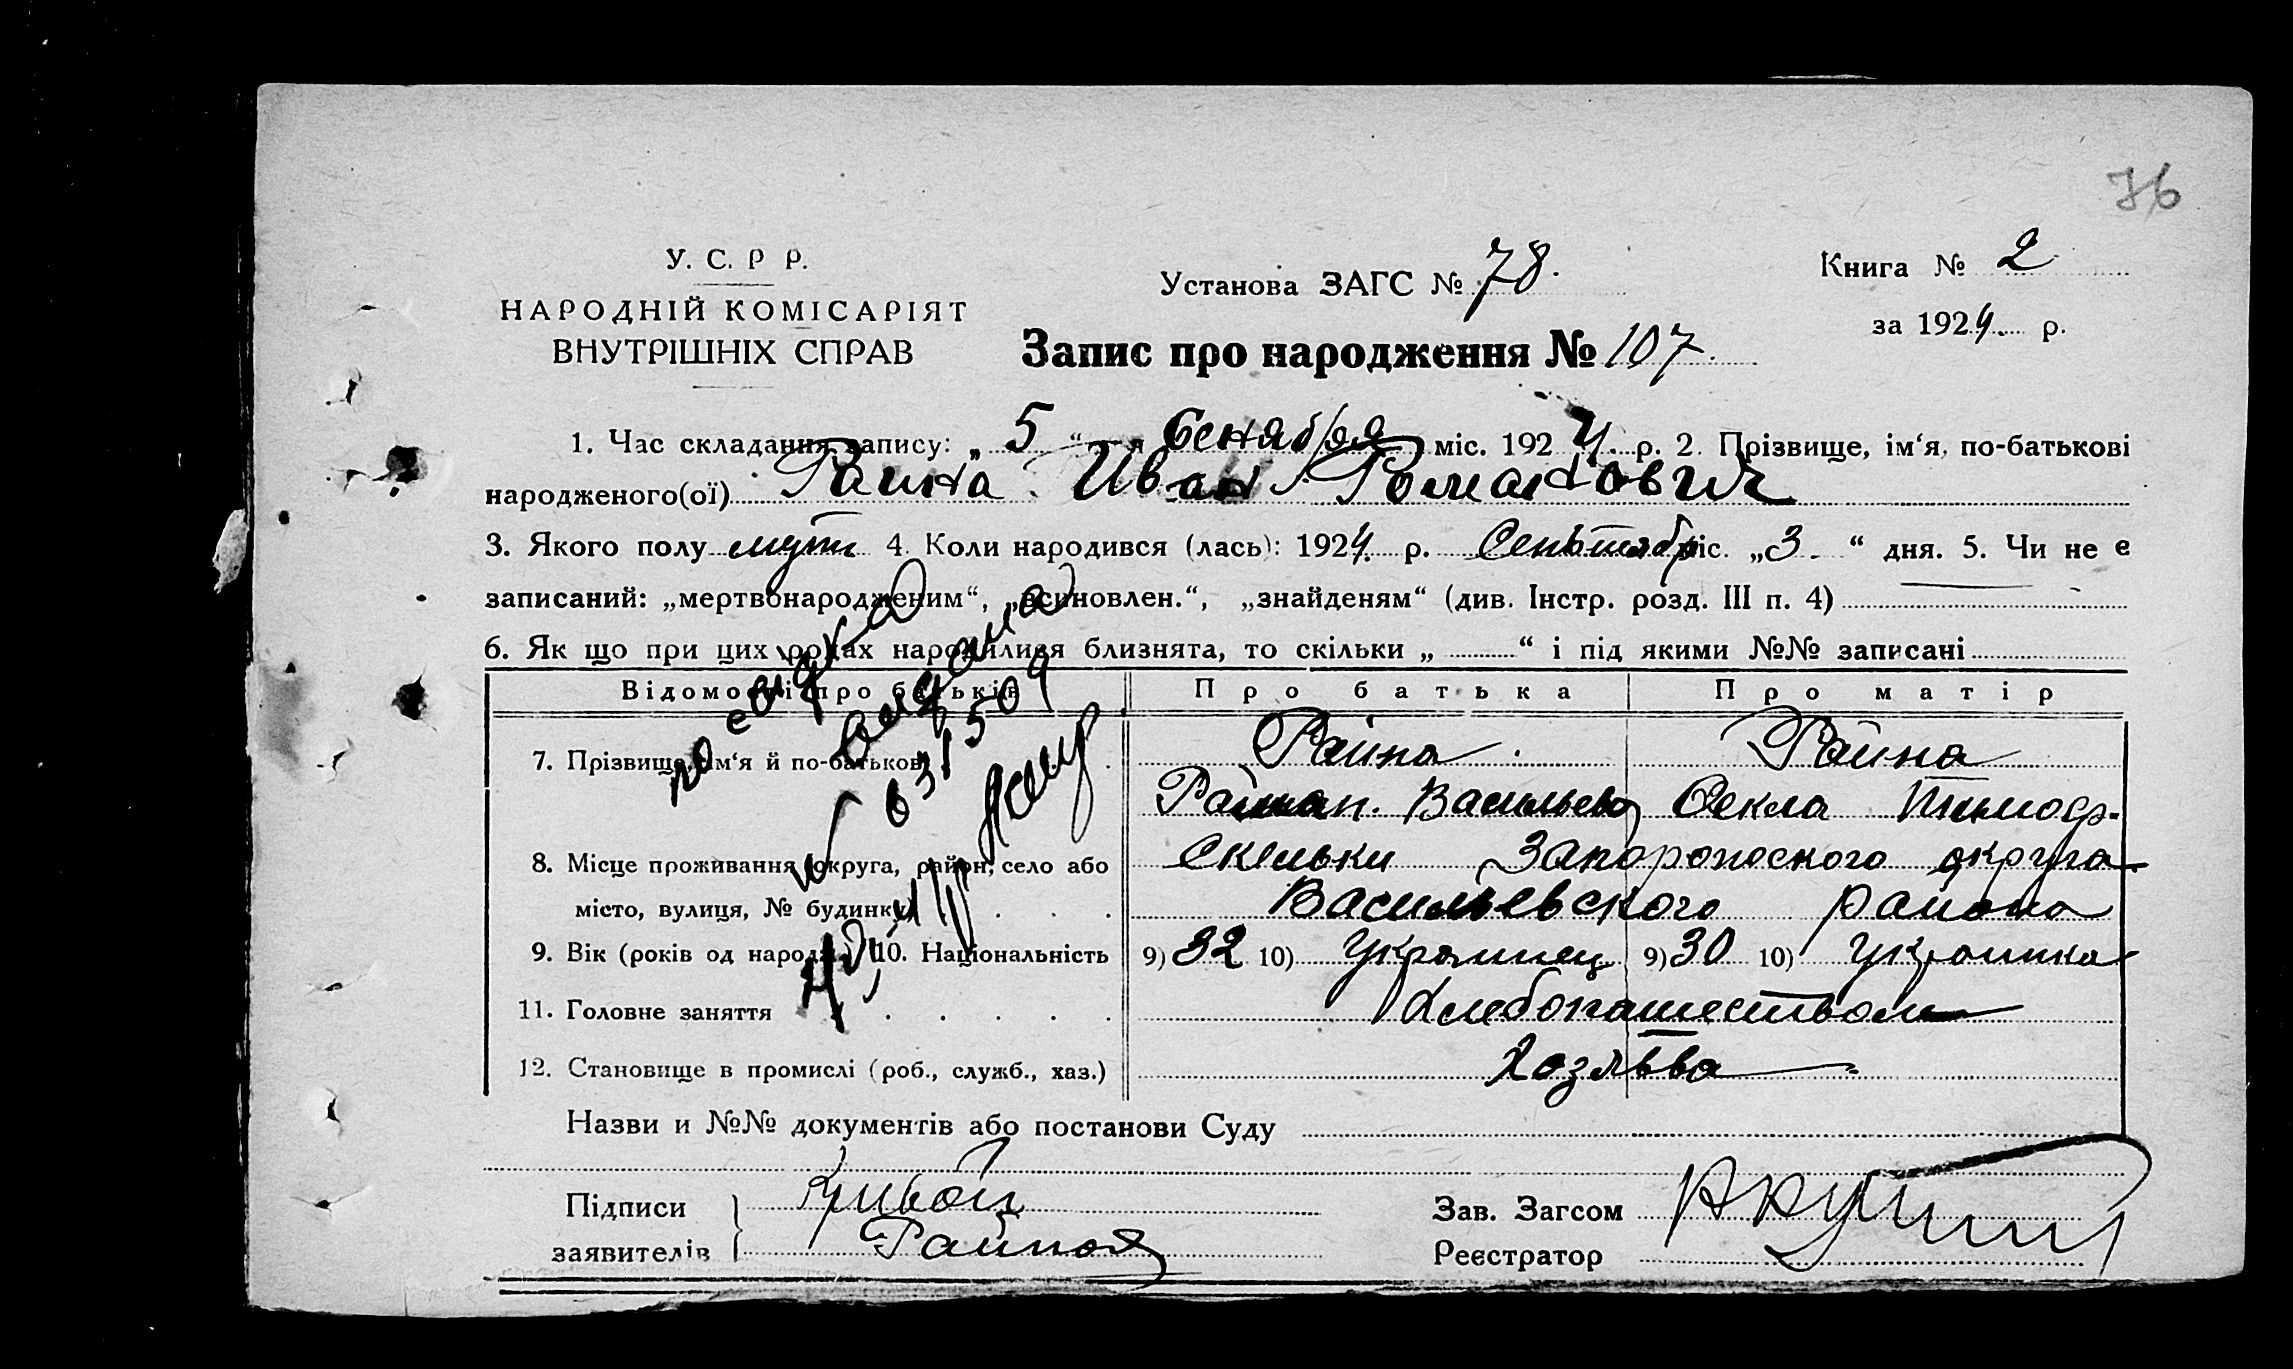 76
У. С. Р Р.
НАРОДНІЙ КОМІСАРІЯТ
ВНУТРІШНІХ СПРАВ
Установа ЗАГС № 78.
Книга № 2
за 1924 р.
Запис про народження № 107.
1. Час складання запису: „ 5 “ Сенября міс. 1924 р. 2. Прізвище, ім‘я, по-батькові
народженого(ої) Раина Иван Романович
3. Якого полу муж 4. Коли народився (лась): 1924 р. Сеньтябр міс. „3 “ дня. 5. Чи не є
записаний: „мертвонародженим“, „всиновлен.“, „знайденям“ (див. Інстр. розд. III п. 4)
6. Як що при цих родах народилися близнята, то скільки „ “ і під якими №№ записані
Відомості про батьків Про батька Про матір
7. Прізвище, ім‘я й по-батькові Райна Райна
Василь Фекла Тимоф.
8. Місце проживання (округа, район, село або Скельки Запорожского округа
місто, вулиця, № будинку) Васильевского района
9. Вік (років од народж.) 10. Національність 9) 32 10) Украинец 9) 30 10) Украинка
11. Головне заняття Хлебопашеством
12. Становище в промислі (роб., служб., хаз.)
Назви и №№ документів або постанови Суду
Підписи Кривой
заявителів Райная
Зав. Загсом
Реєстратор